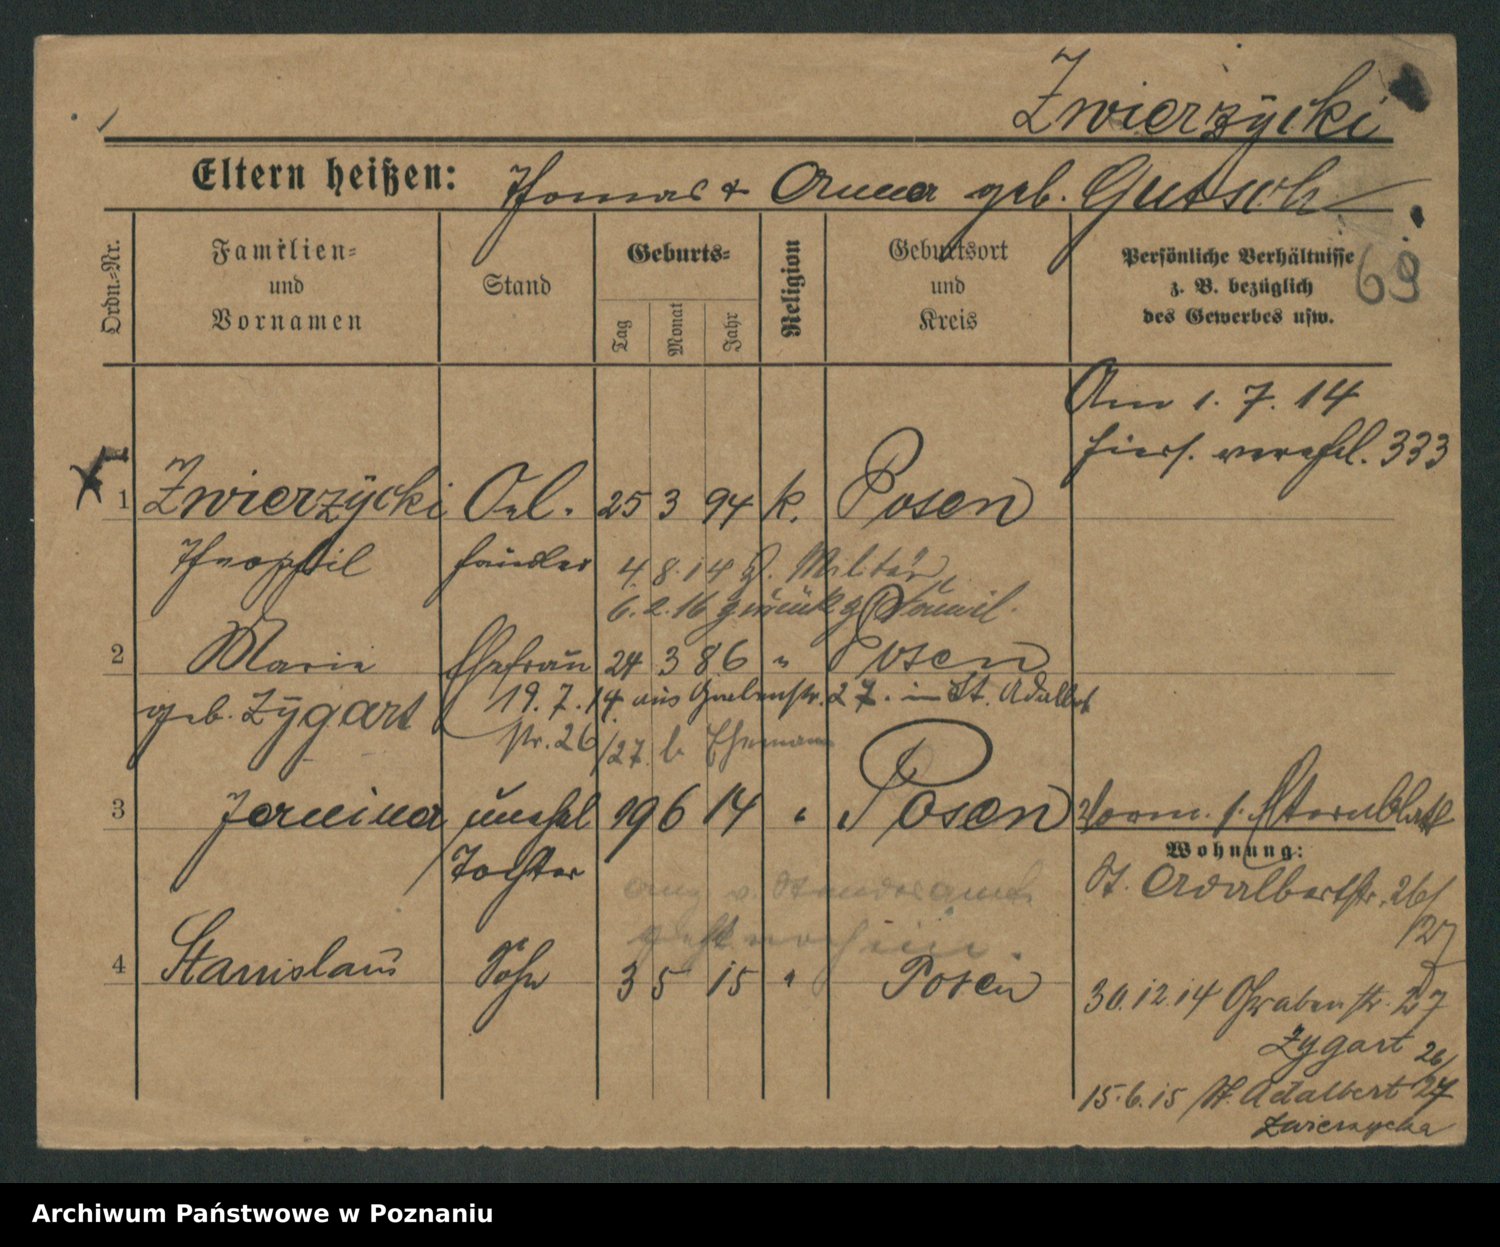 Zwierzycki
Eltern heißen: Thomas & Anna geb. Gutsch
Ordn.=Nr.
Familien=
und
Vornamen
Stand
Geburts=
Tag
Monat
Jahr
Religion
Geburtsort
und
Kreis
Persönliche Verhältnisse
z. B. bezüglich
des Gewerbes usw.
69
Am 1. 7. 14
hiers. verehel. 333
1 Zwierzycki Oel- 25 3 94 k. Posen
Theophil händler 4. 8. 14 z. Militär
6. 2. 16 zurück
2 Marie Ehefrau 24 3 86 " Posen
geb. Zygart 19. 7. 14 aus Grabenstr. 27. in St. Adalbert
str. 26/27 b. Ehemann
3 Janina unehel 19 6 14 " Posen
Tochter
Vorm. s. Sternblatt
Wohnung:
St. Adalbertstr. 26/
27
4 Stanislaus Sohn 3 5 15 " Posen
30.12.14 Grabenstr. 27
Zygart
15.6.15 St. Adalbert 26/27
Zwierzycka
Archiwum Państwowe w Poznaniu